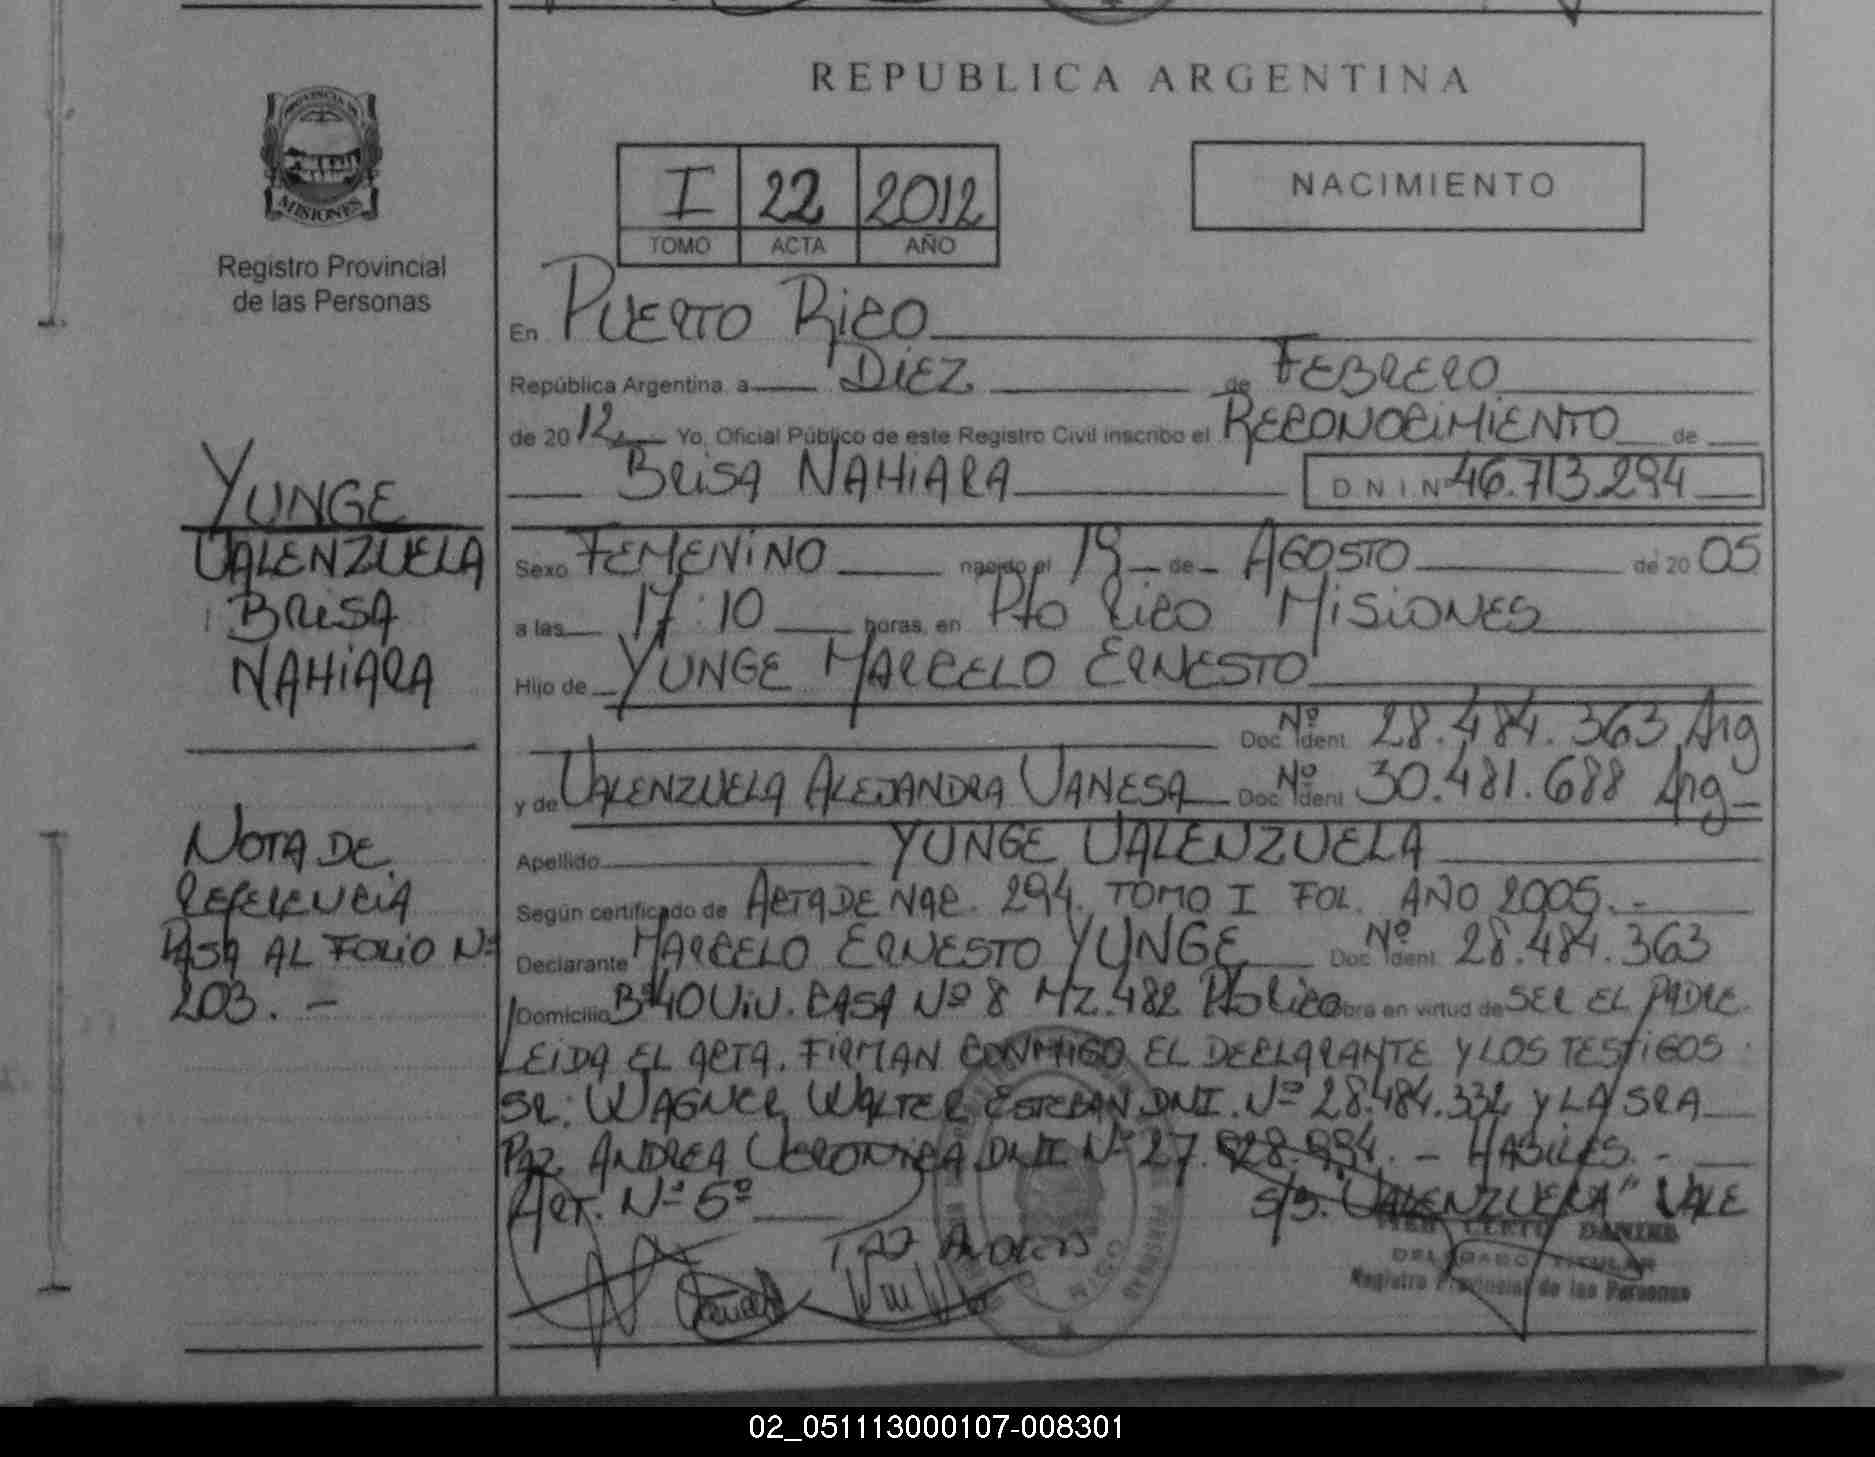 REPUBLICA ARGENTINA
PROVINCIA DE
MISIONES
Registro Provincial
de las Personas
I 22 2012
TOMO ACTA AÑO
NACIMIENTO
En PUERTO RICO
República Argentina, a DIEZ de FEBRERO
de 2012 Yo, Oficial Público de este Registro Civil inscribo el RECONOCIMIENTO de
BRISA NAHIARA D N I Nº 46.713.294
YUNGE
VALENZUELA
BRISA
NAHIARA
Sexo FEMENINO nacido el 19 de AGOSTO de 2005
a las 17:10 horas, en Pto RICO MISIONES
Hijo de YUNGE MARCELO ERNESTO
Doc. Ident. Nº 28.484.363 Arg
y de VALENZUELA ALEJANDRA VANESA Doc. Ident. Nº 30.481.688 Arg
Apellido YUNGE VALENZUELA
NOTA DE
REFERENCIA
PASA AL FOLIO Nº
203. -
Según certificado de ACTA DE NAC. 294. TOMO I FOL. AÑO 2005. -
Declarante MARCELO ERNESTO YUNGE Doc. Ident. Nº 28.484.363
Domicilio Bº 40 VIV. CASA Nº 8 MZ. 482 Pto RICO obra en virtud de SER EL PADRE.
LEIDA EL ACTA. FIRMAN CONMIGO EL DECLARANTE Y LOS TESTIGOS
SR: WAGNER WALTER ESTEBAN DNI. Nº 28.484.332 Y LA SRA
PAZ ANDREA VERONICA DNI Nº 27. - HABILES. -
ART. Nº 5º S/B. "VALENZUELA" VALE
DANIEL
DELEGADO TITULAR
Registro Provincial de las Personas
02_051113000107-008301